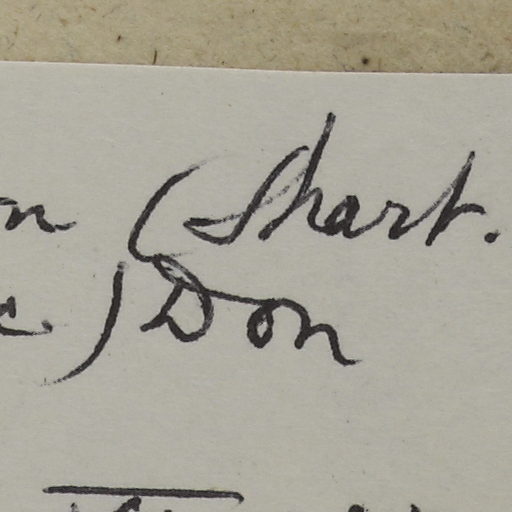 n (Shart.
c.) Don